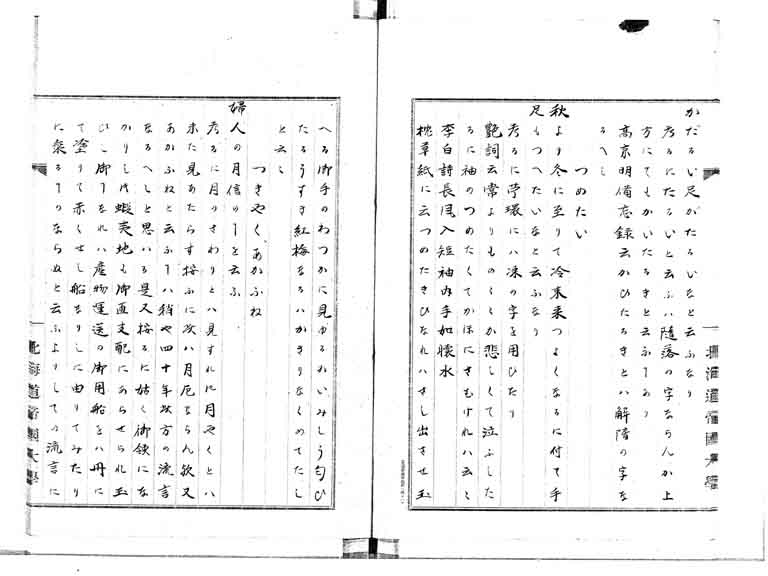 かだるい足がたるいなと云ふなり
考るにたるいと云ふハ随落の字ならんか上
方にてもかいたるきと云ふ
高京明備忘録云かひたるきとハ解隋の字な
るへし
つめたい
秋より冬に至りて冷気来つよくなるに付て手
足もつへたいなと云ふなり
考るに孛環にハ凍の字を用ひたり
艶詞云常よりものうくか悲しくて泣ふした
るに袖のつめたくてかほにさむけれハ云々
李白詩長風入短袖内手如懐氷
枕草紙に云つめたきひなれハさし出させ玉
へる御手のわつかに見ゆるかいみしう匂ひ
たるうすき紅梅なるハかきりなくめてたし
と云々
つきやく、あかふね
婦人の月信のを云ふ
考るに月のさわりとハ見すれに月やくとハ
未た見あたらす按ふに次ハ月厄ならん歟又
あかふねと云ふハ稍や四十年以方の流言
なるへしと思ハる是又按るに姑く御領にな
かりし内蝦夷地も御直支配にあらせられ玉
ひ御ハ産物運送の御用船をハ丹に
て塗りて赤くせし船なりしに由りてみたり
に乗るならぬと云ふよりしての流言に
北海道帝国大学
北海道帝国大学